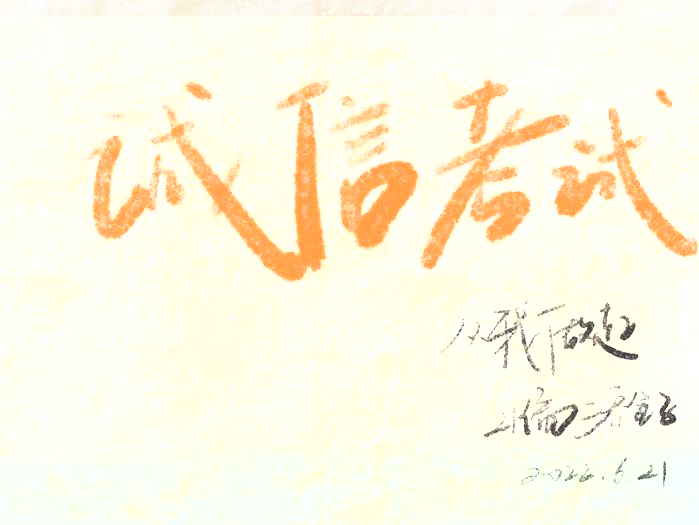 诚信考试
从我做起
2022.6.21